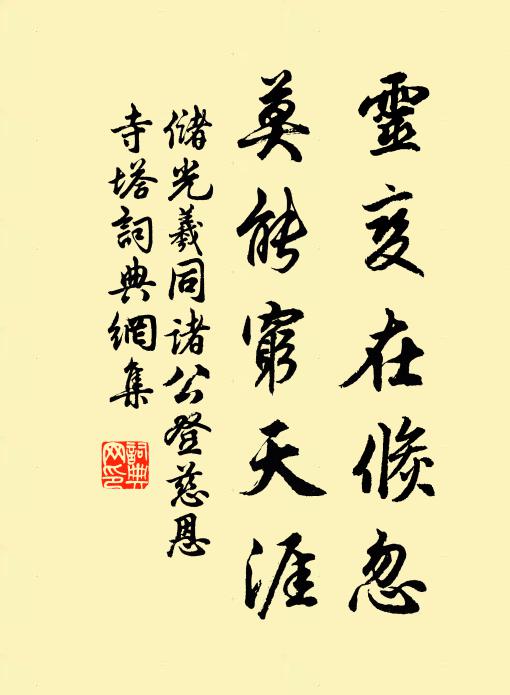 靈变在倏忽
莫能窮天涯
儲光羲同諸公登慈恩
寺塔詞典網集
詞典
网印